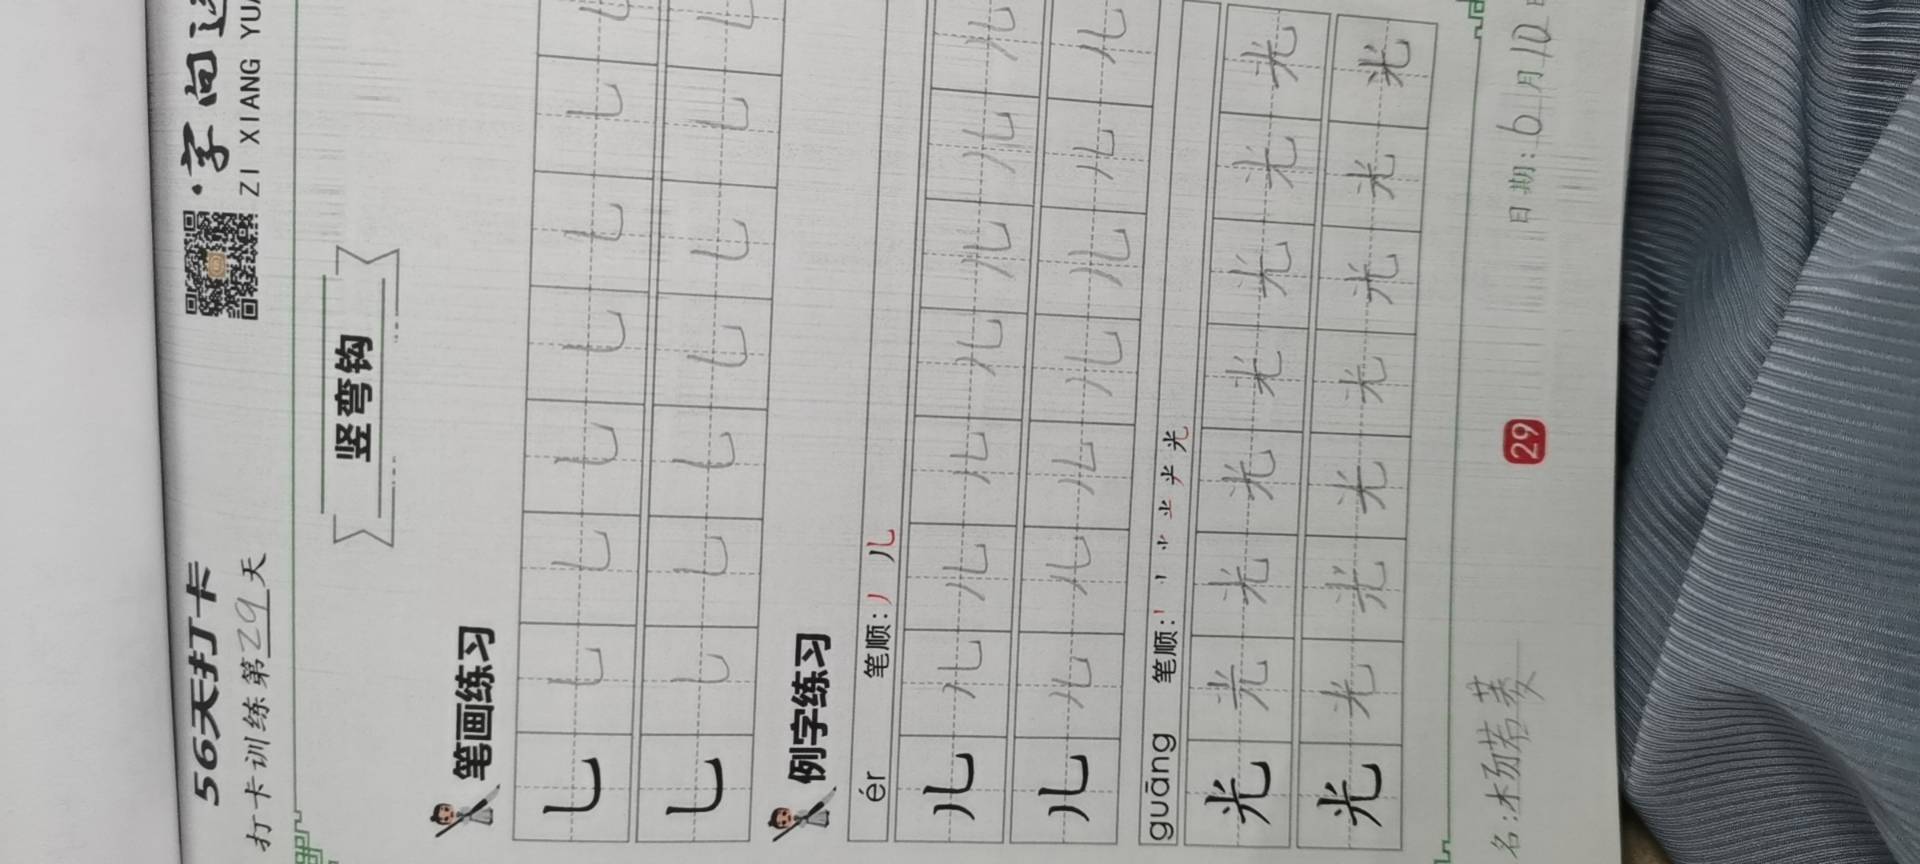 56天打卡
·字向
ZI XIANG YUA
打卡训练第29天
竖弯钩
笔画练习
乚 乚 乚 乚 乚 乚 乚 乚 乚
乚 乚 乚 乚 乚 乚 乚 乚 乚
例字练习
ér 笔顺:丿 儿
儿 儿 儿 儿 儿 儿 儿 儿
儿 儿 儿 儿 儿 儿 儿 儿
guāng 笔顺:
光 光 光 光 光 光 光 光
光 光 光 光 光 光 光 光
名:杨若菱
29
日期:6月10日